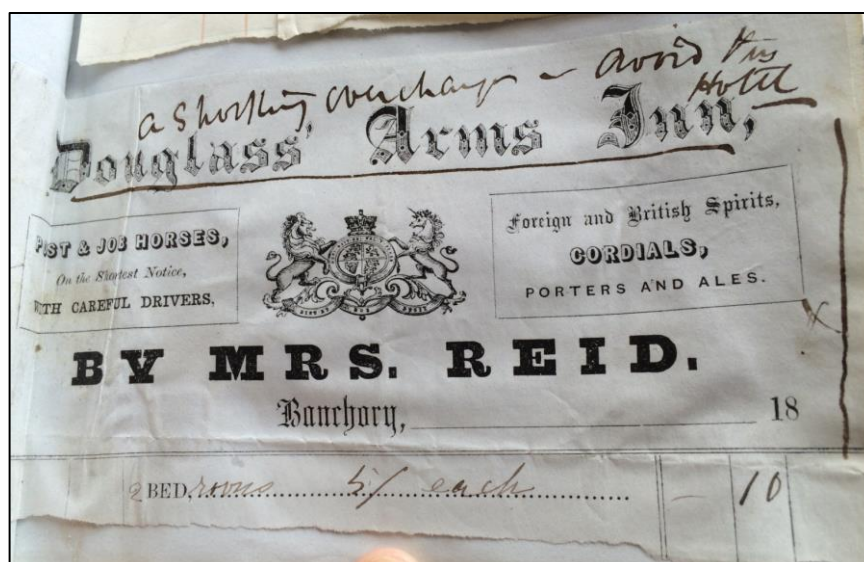 a Shocking overcharge - avoid this
Hotel
Douglass' Arms Inn,
POST & JOB HORSES,
On the Shortest Notice,
WITH CAREFUL DRIVERS,
Foreign and British Spirits,
CORDIALS,
PORTERS AND ALES.
DIEU ET MON DROIT
BY MRS. REID.
Banchory, 18
2 BED rooms 5/ each - 10